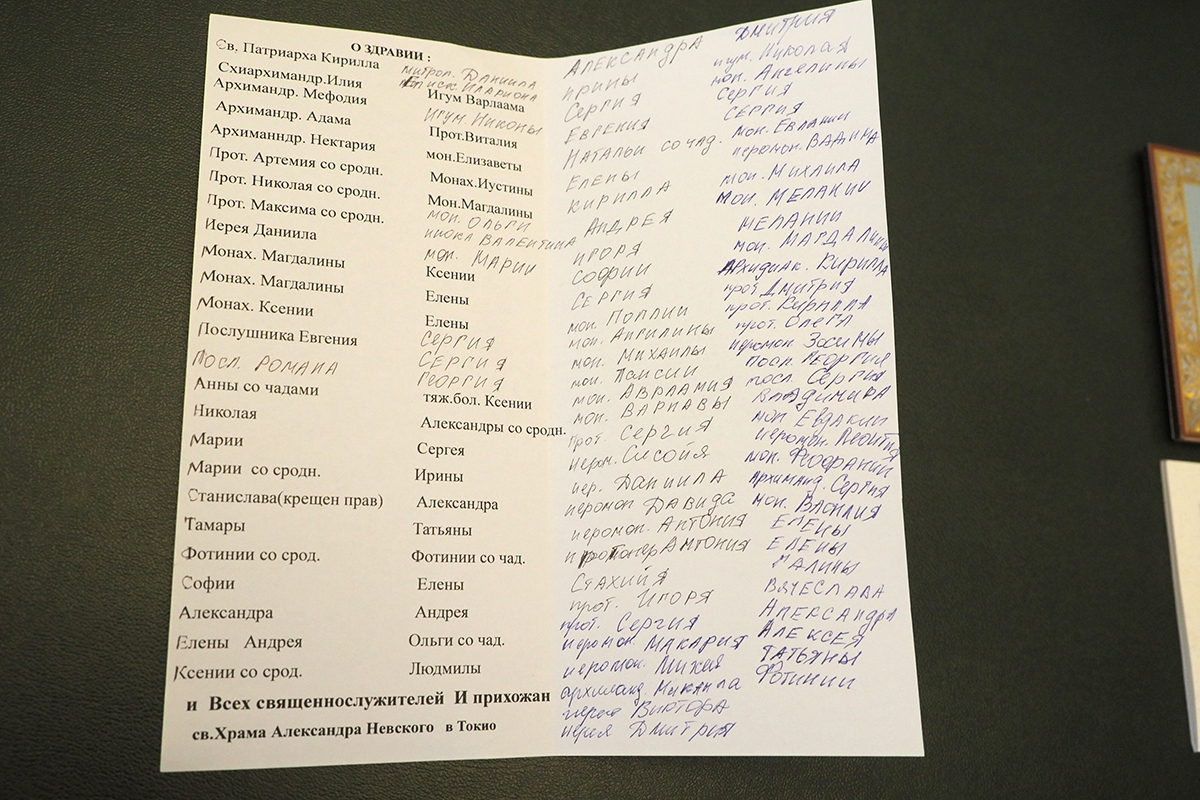 О ЗДРАВИИ :
Св. Патриарха Кирилла
Схиархимандр.Илия
Архимандр. Мефодия
Архимандр. Адама
Архиманндр. Нектария
Прот. Артемия со сродн.
Прот. Николая со сродн.
Прот. Максима со сродн.
Иерея Даниила
Монах. Магдалины
Монах. Магдалины
Монах. Ксении
Послушника Евгения
ПОСЛ. РОМАНА
Анны со чадами
Николая
Марии
Марии со сродн.
Станислава(крещен прав)
Тамары
Фотинии со срод.
Софии
Александра
Елены Андрея
Ксении со срод.
митроп. Даниила
Илариона
Игум Варлаама
Игум. Никоны
Прот.Виталия
мон.Елизаветы
Монах.Иустины
Мон.Магдалины
мон. Ольги
инока Валентина
мон. Марии
Ксении
Елены
Елены
СЕРГИЯ
СЕРГИЯ
ГЕОРГИЯ
тяж.бол. Ксении
Александры со сродн.
Сергея
Ирины
Александра
Татьяны
Фотинии со чад.
Елены
Андрея
Ольги со чад.
Людмилы
и Всех священнослужителей И прихожан
св.Храма Александра Невского в Токио
АЛЕКСАНДРА
ИРИНЫ
СЕРГИЯ
ЕВГЕНИЯ
НАТАЛЬИ СО ЧАД.
ЕЛЕНЫ
КИРИЛЛА
АНДРЕЯ
ИГОРЯ
СОФИИ
СЕРГИЯ
мон. ПОЛЛИИ
мон. АНГИЛИНЫ
мон. МИХАИЛЫ
мон. ПАИСИИ
мон. АВРААМИЯ
мон. ВАРНАВЫ
прот. СЕРГИЯ
иерм. Сисойя
иер. ДАНИИЛА
иеромон ДАВИДА
иеромон. АНТОНИЯ
АНТОНИЯ
СТАХИЙЯ
прот. ИГОРЯ
прот. Сергия
иеромон. МАКАРИЯ
иеромон. Михея
архиманд. Михаила
иерея ВИКТОРА
иерея ДМИТРИЯ
ДМИТРИЯ
игум. Николая
мон. Ангелины
СЕРГИЯ
СЕРГИЯ
мон. ЕВЛАНИИ
иеромон. ВАДИМА
мон. МИХАИЛА
мон. МЕЛАНИИ
МЕЛАНИИ
мон. МАГДАЛИНЫ
АРХИДИАК. КИРИЛЛА
прот. ДМИТРИЯ
прот. КИРИЛЛА
прот. ОЛЕГА
иеромон. ЗОСИМЫ
посл. ГЕОРГИЯ
посл. СЕРГИЯ
ВЛАДИМИРА
мон. ЕВДАКИИ
иеромон. Леонтия
мон. Феофании
Архиманд. Сергия
мон. ВАСИЛИЯ
ЕЛЕНЫ
ЕЛЕНЫ
ГАЛИНЫ
ВЯЧЕСЛАВА
АЛЕКСАНДРА
АЛЕКСЕЯ
ТАТЬЯНЫ
ФОТИНИИ